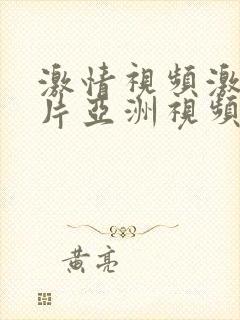 激情視頻激
片亞洲視頻
黃亮